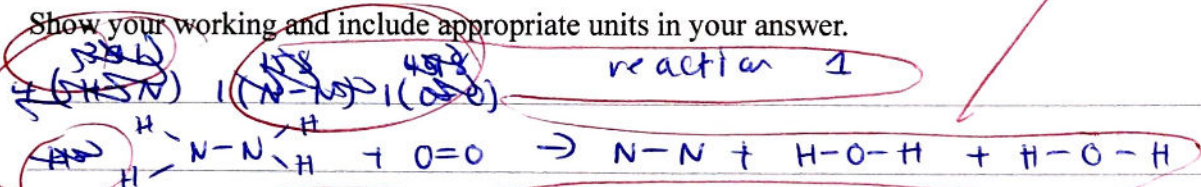 Show your working and include appropriate units in your answer.
reaction 1
H H
N-N + O=O → N-N + H-O-H + H-O-H
H H